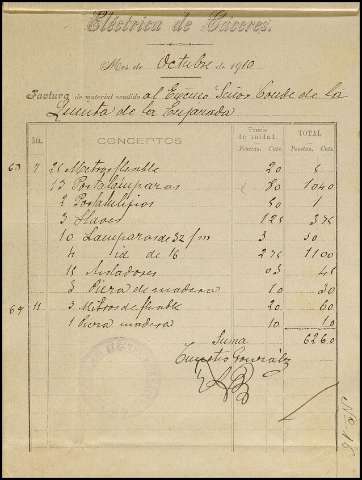 Eléctrica de Cáceres.
Mes de Octubre de 1910
Factura de material vendido al Excmo Señor Conde de la
Quinta de la Enjarada
Día. CONCEPTOS Precio de unidad Pesetas. Cnts. TOTAL Pesetas. Cnts.
7 25 Metros flexible 20 5
13 Portalámparas 80 10 40
2 80 1
3 Llaves 1 25 3 75
10 Lamparas de 32 f/m 3 30
4 id de 16 2 75 11 00
15 Aisladores 03 45
3 Pieza de madera 10 30
11 3 Metros flexible 20 60
1 Pieza madera 10 10
Suma 62 60
González
Nº 18